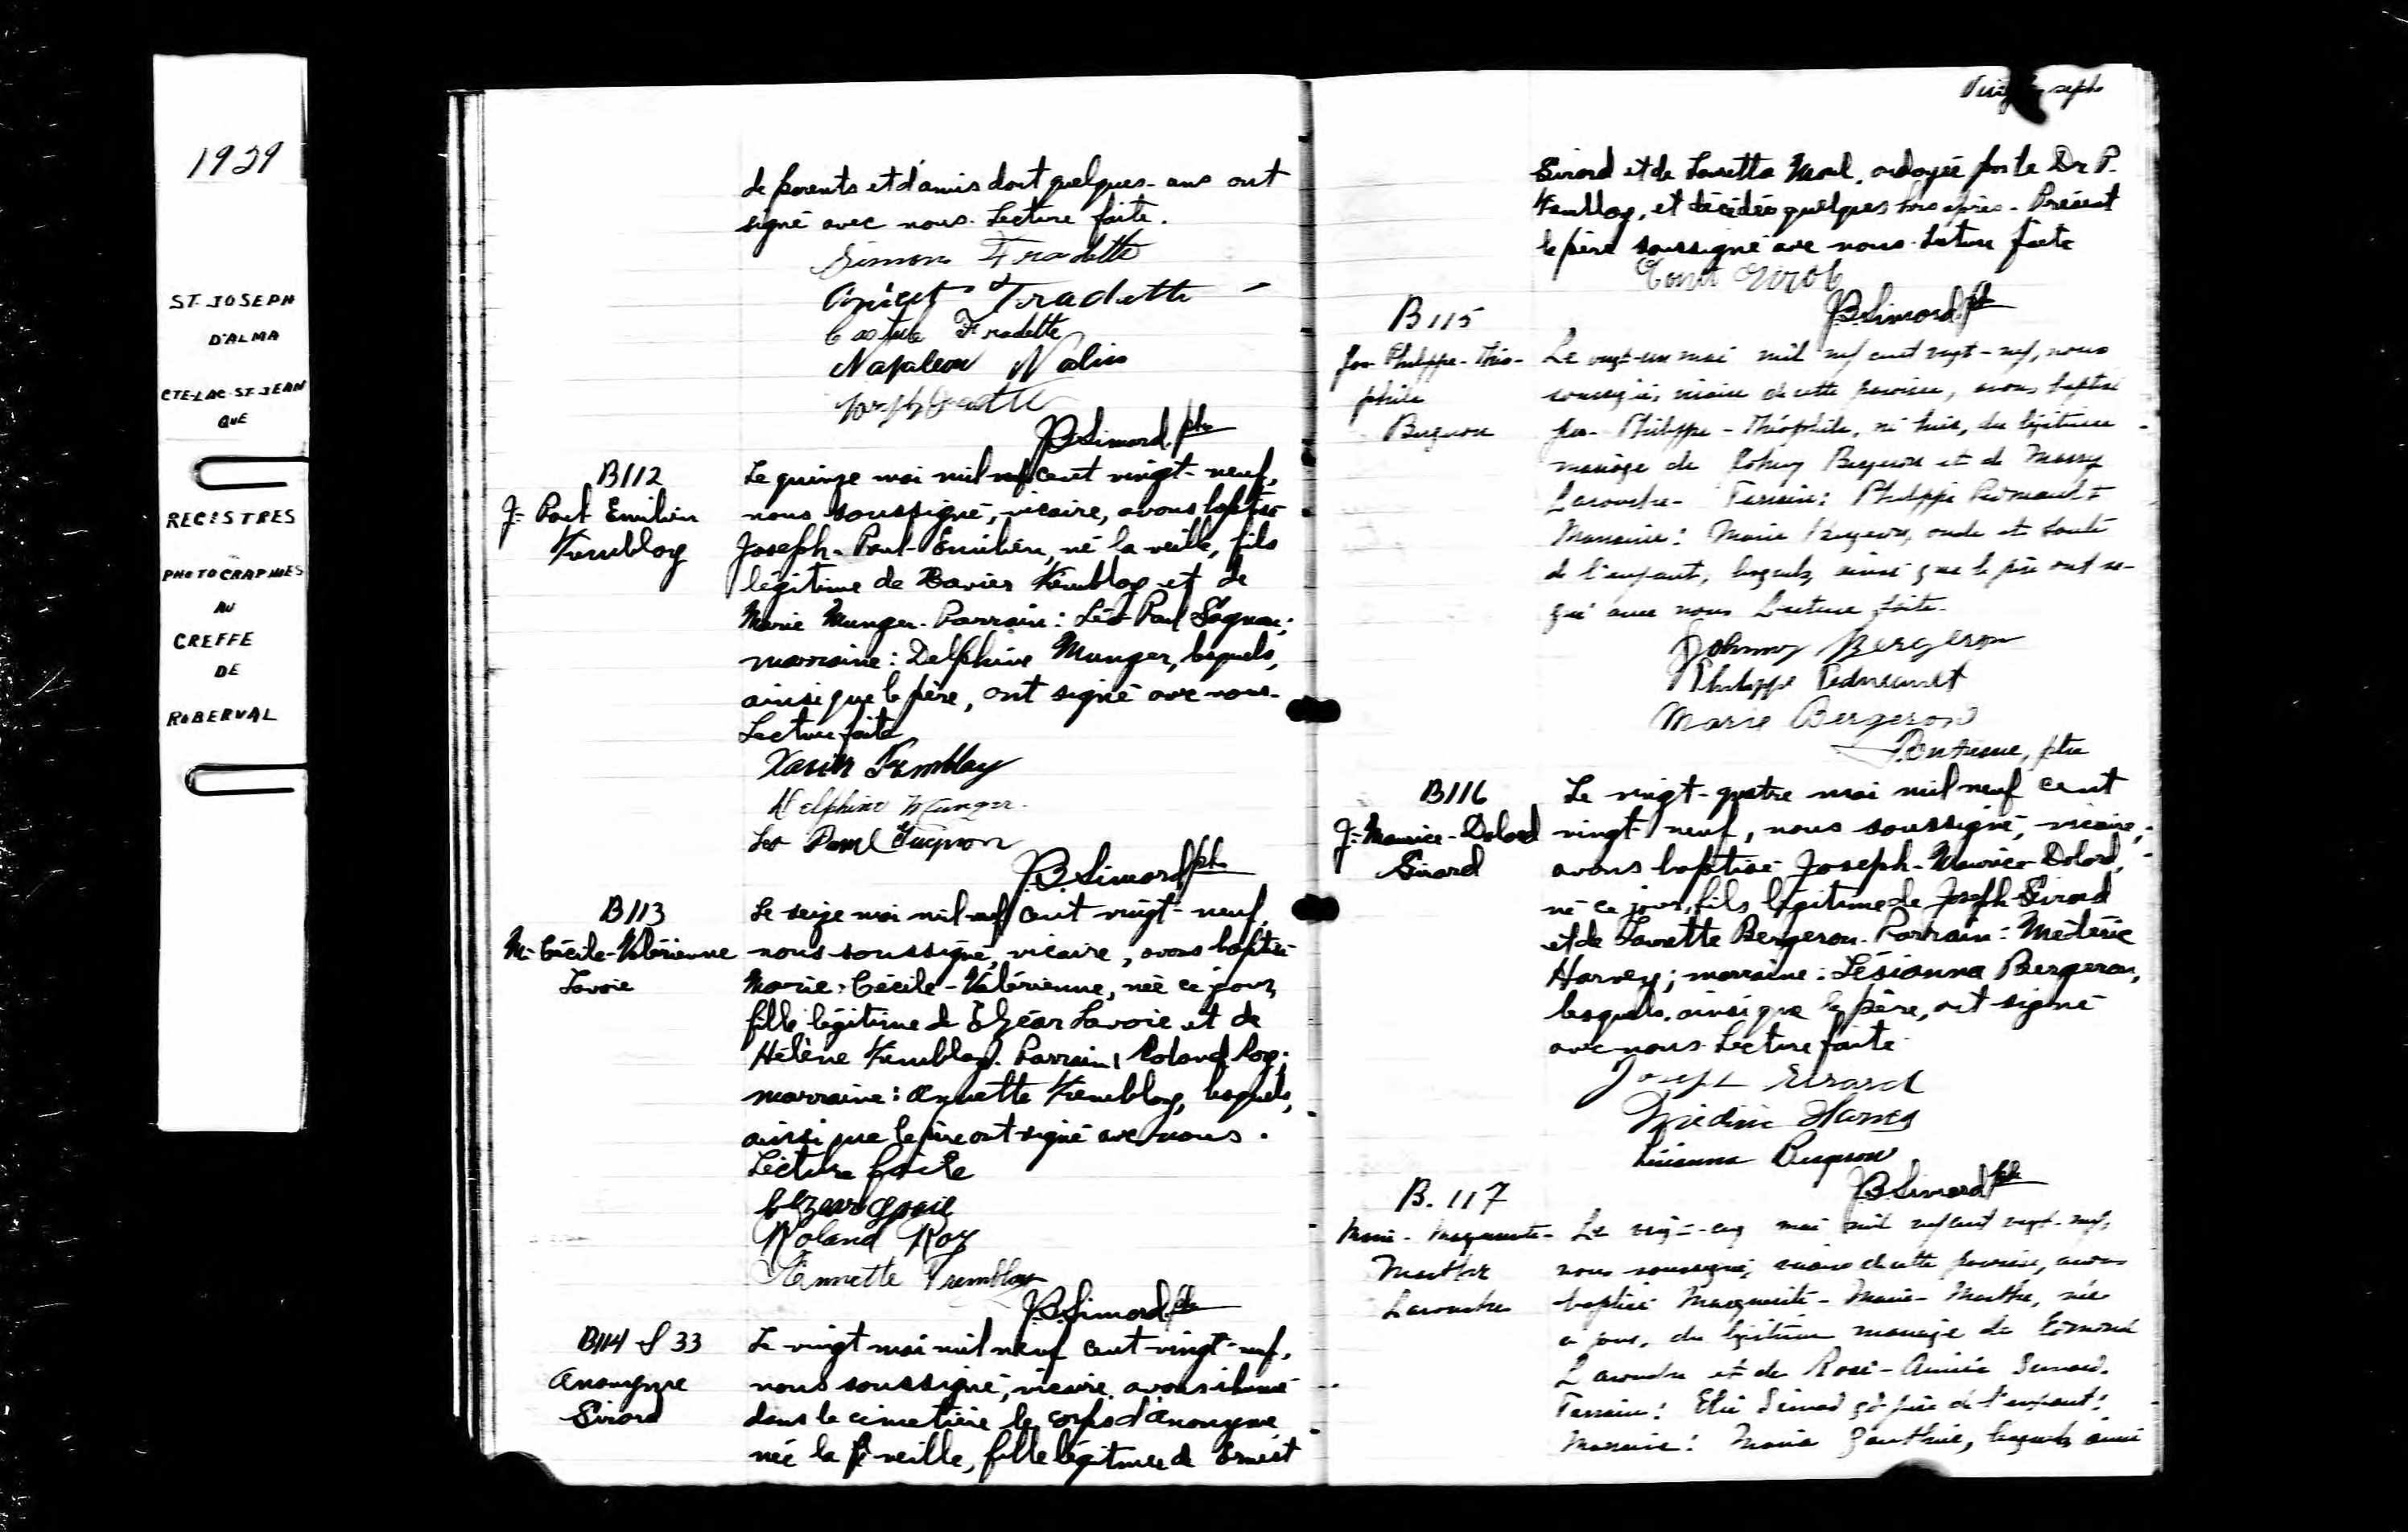 1929
ST. JOSEPH
D'ALMA
CTE-LAC-ST-JEAN
QUE
REGISTRES
PHOTOGRAPHIES
AU
GREFFE
DE
ROBERVAL
de parents et d'amis dont quelques-uns ont
signé avec nous. Lecture faite.
Simon Fradette
Fradette
Fradette
Napoleon
J.B. Simard, ptre
B112
J. Paul Emilien
Tremblay
Le quinze mai mil neuf cent vingt-neuf,
nous soussigné, vicaire, avons baptisé
Joseph-Paul-Emilien, né la veille, fils
légitime de Xavier Tremblay et de
Marie Munger. Parrain: Léo-Paul
marraine: Delphine Munger, lesquels,
ainsi que le père, ont signé avec nous.
Lecture faite
Xavier Tremblay
Delphine Munger
Leo Paul
J.B. Simard, ptre
B113
M. Cécile-Valérienne
Lavoie
Le seize mai mil neuf cent vingt-neuf,
nous soussigné, vicaire, avons baptisé
Marie-Cécile-Valérienne, née ce jour,
fille légitime de Elzéar Lavoie et de
Hélène Tremblay. Parrain: Roland Roy;
marraine: Annette Tremblay, lesquels,
ainsi que le père ont signé avec nous.
Lecture faite
Roland Roy
Annette Tremblay
J.B. Simard, ptre
B114 S 33
Anonyme
Girard
Le vingt mai mil neuf cent vingt-neuf,
nous soussigné, vicaire, avons inhumé
dans le cimetière le corps d'anonyme
née la veille, fille légitime de Ernest
Girard et de Lauretta, ondoyée par le Dr P.
Tremblay, et décédée quelques hrs après. Présent
le père soussigné avec nous. Lecture faite
J.B. Simard, ptre
B115
Jos-Philippe-Théo-
phile
Bergeron
Le vingt-un mai mil neuf cent vingt-neuf, nous
soussigné, vicaire de cette paroisse, avons baptisé
Jos-Philippe-Théophile, né hier, du légitime
mariage de Johnny Bergeron et de
Larouche. Parrain: Philippe Pedneault
Marraine: Marie Bergeron, oncle et tante
de l'enfant, lesquels, ainsi que le père ont si-
gné avec nous. Lecture faite.
Johnny Bergeron
Philippe Pedneault
Marie Bergeron
ptre
B116
J. Maurice-Dolard
Girard
Le vingt-quatre mai mil neuf cent
vingt-neuf, nous soussigné, vicaire,
avons baptisé Joseph-Maurice-Dolard,
né ce jour, fils légitime de Joseph Girard
et de Laurette Bergeron. Parrain: Médéric
Harvey; marraine: Lésianna Bergeron,
lesquels, ainsi que le père, ont signé
avec nous. Lecture faite.
Joseph Girard
Harvey
Bergeron
J.B. Simard, ptre
B. 117
Marie-Marguerite-
Marthe
Larouche
Le vingt-cinq mai mil neuf cent vingt-neuf,
nous soussigné, vicaire de cette paroisse, avons
baptisé Marguerite-Marie-Marthe, née
ce jour, du légitime mariage de Edmond
Larouche et de Rose-Aimée Simard.
Parrain: Elie Simard gd-père de l'enfant;
Marraine: Maria Gauthier, lesquels ainsi